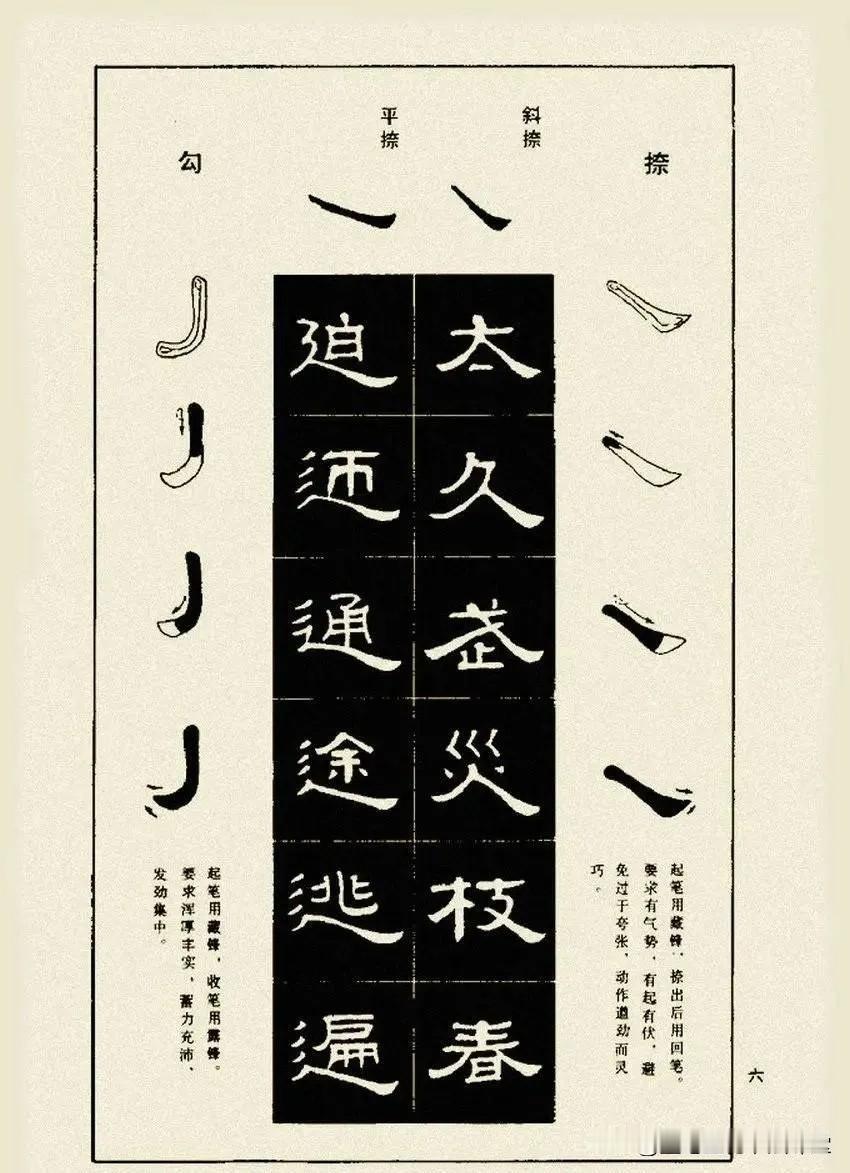 捺
斜捺
平捺
勾
太久武災枝春
迫通途逃遍
起笔用藏锋，捺出后用回笔。
要求有气势，有起有伏，避
免过于夸张，动作遒劲而灵
巧。
起笔用藏锋，收笔用露锋。
要求浑厚丰实，蓄力充沛、
发劲集中。
六